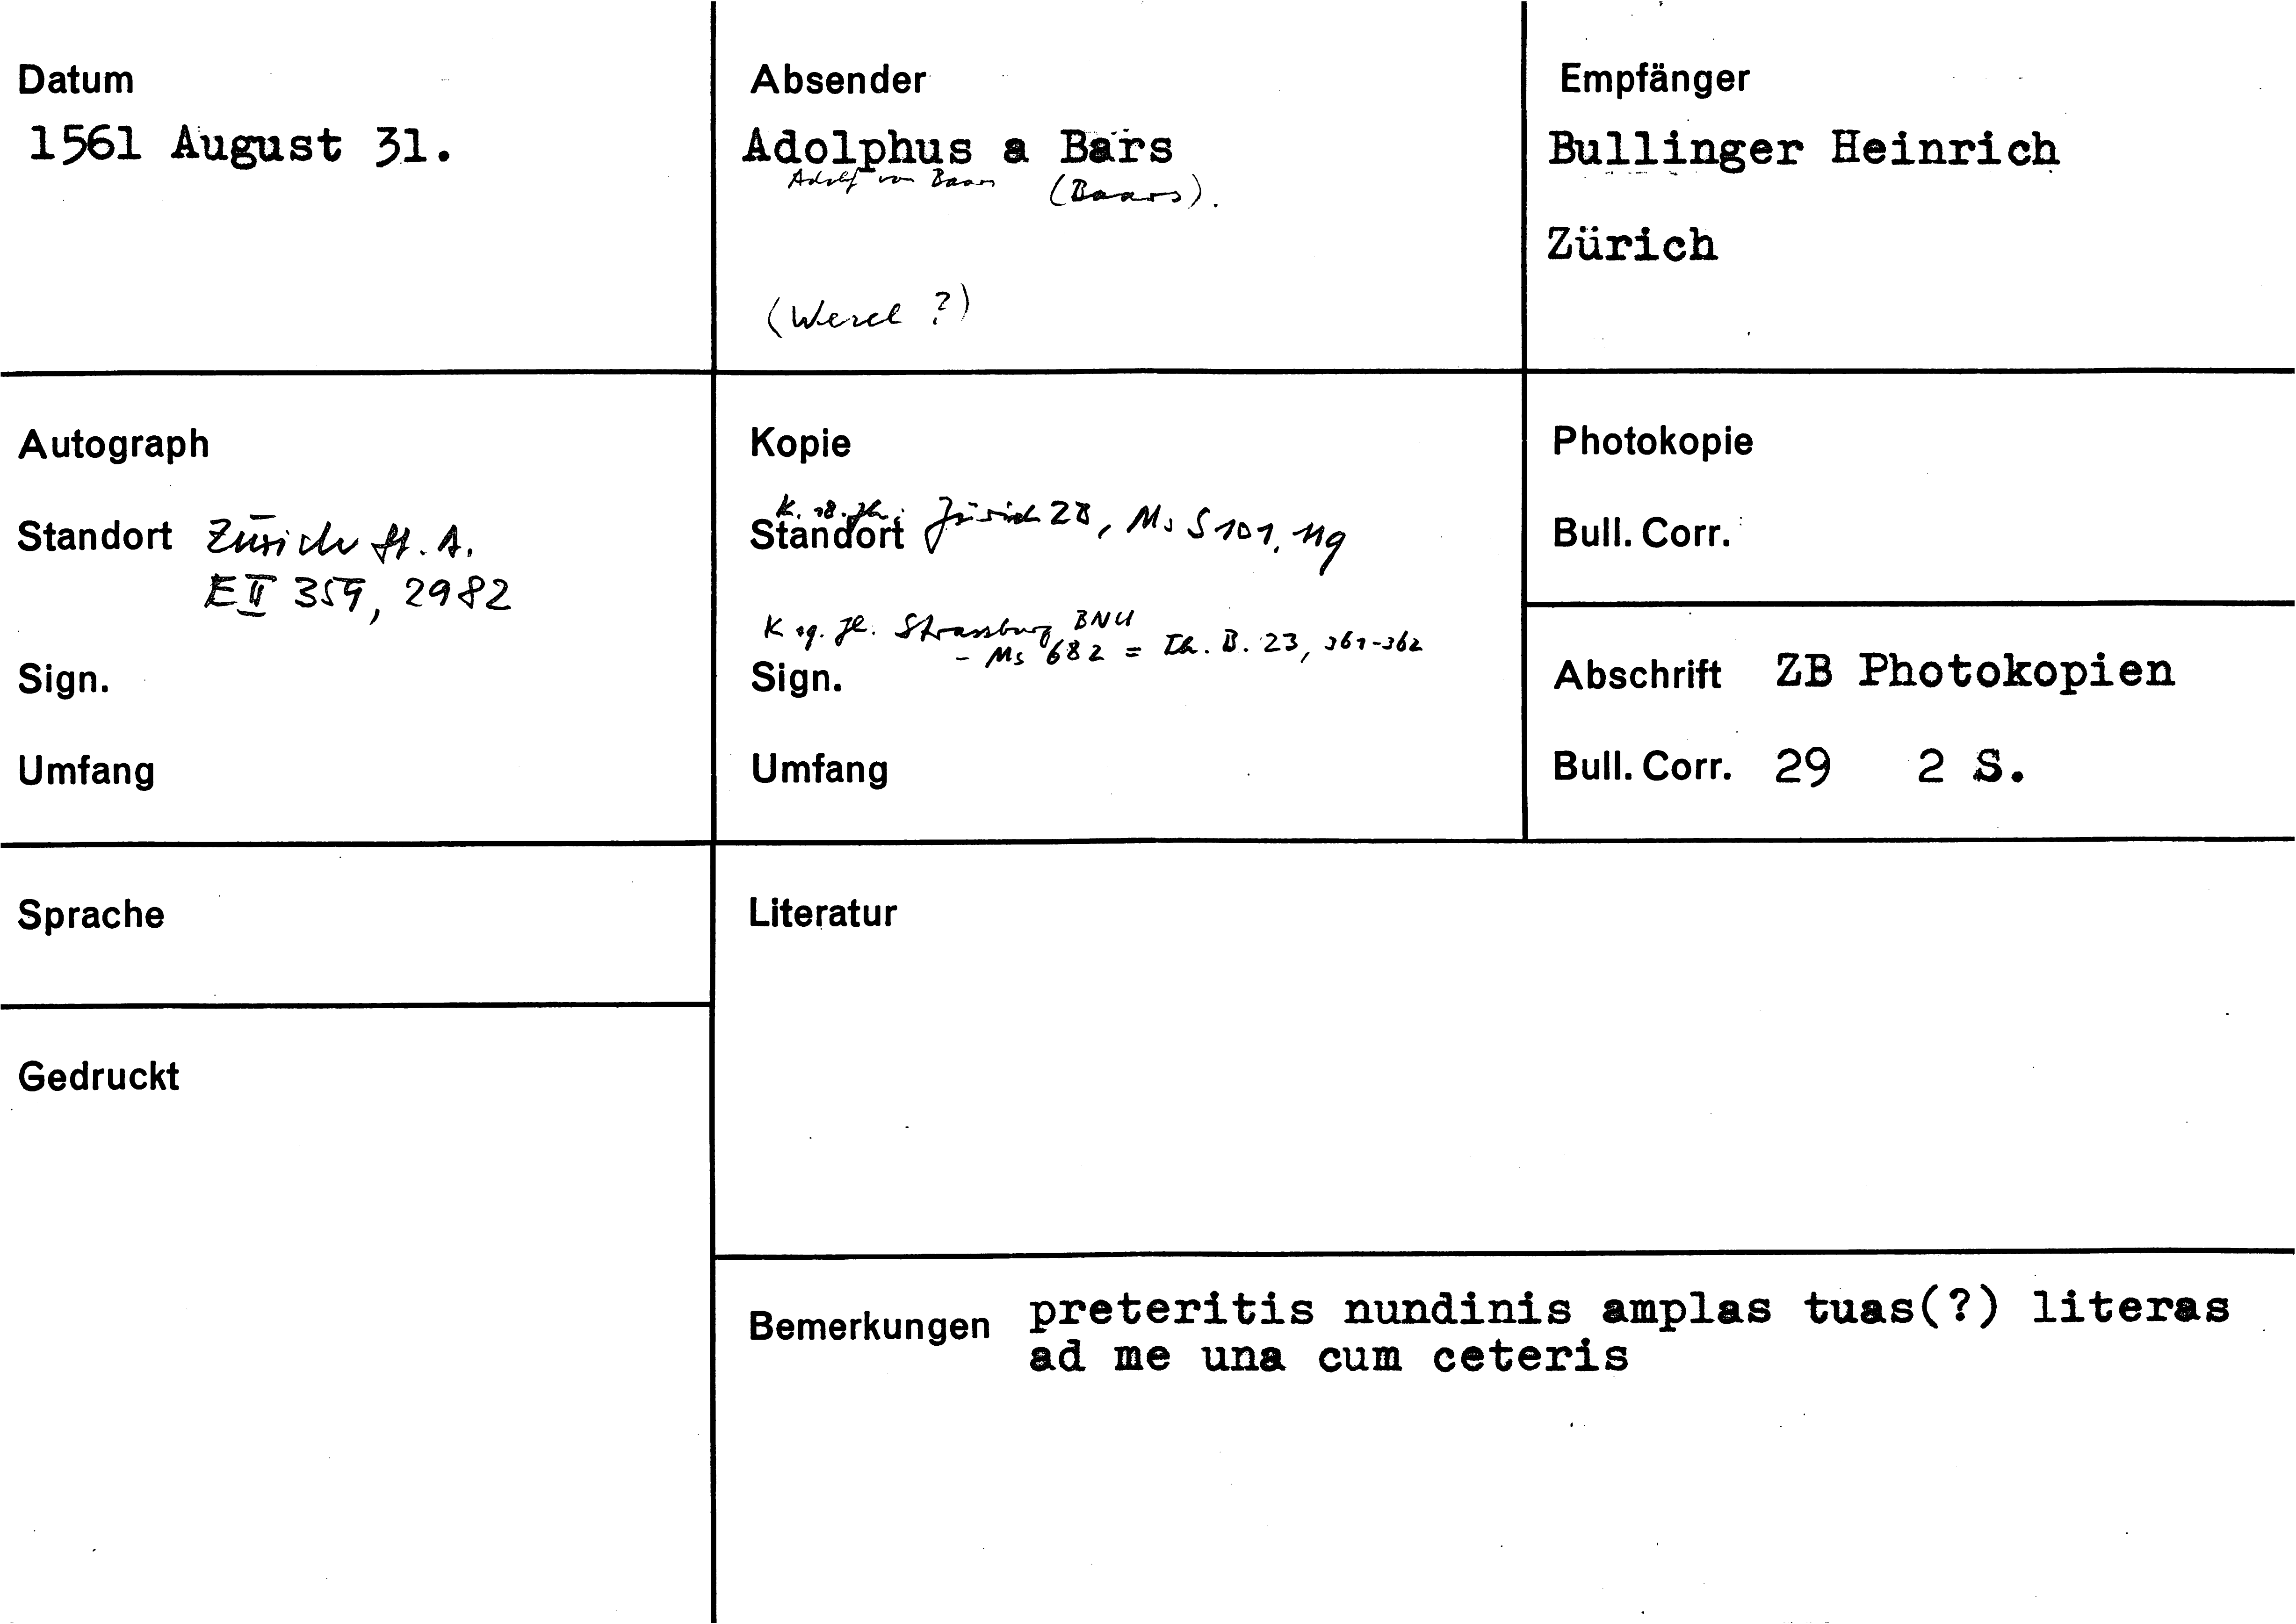 Datum
1561 August 31.
Absender
Adolphus a Bärs
Adolf von Baars (Baars).
(Wesel ?)
Empfänger
Bullinger Heinrich
Zürich
Autograph
Standort Zürich St. A.
E II 359, 2982
Sign.
Umfang
Kopie
K. 18. Jh.
Standort Zürich ZB, Ms S 101, 119
K 19. Jh. Strassburg BNU
- Ms 682 = Th. B. 23, 361-362
Sign.
Umfang
Photokopie
Bull. Corr.
Abschrift ZB Photokopien
Bull. Corr. 29 2 S.
Sprache
Literatur
Gedruckt
Bemerkungen preteritis nundinis amplas tuas(?) literas
ad me una cum ceteris